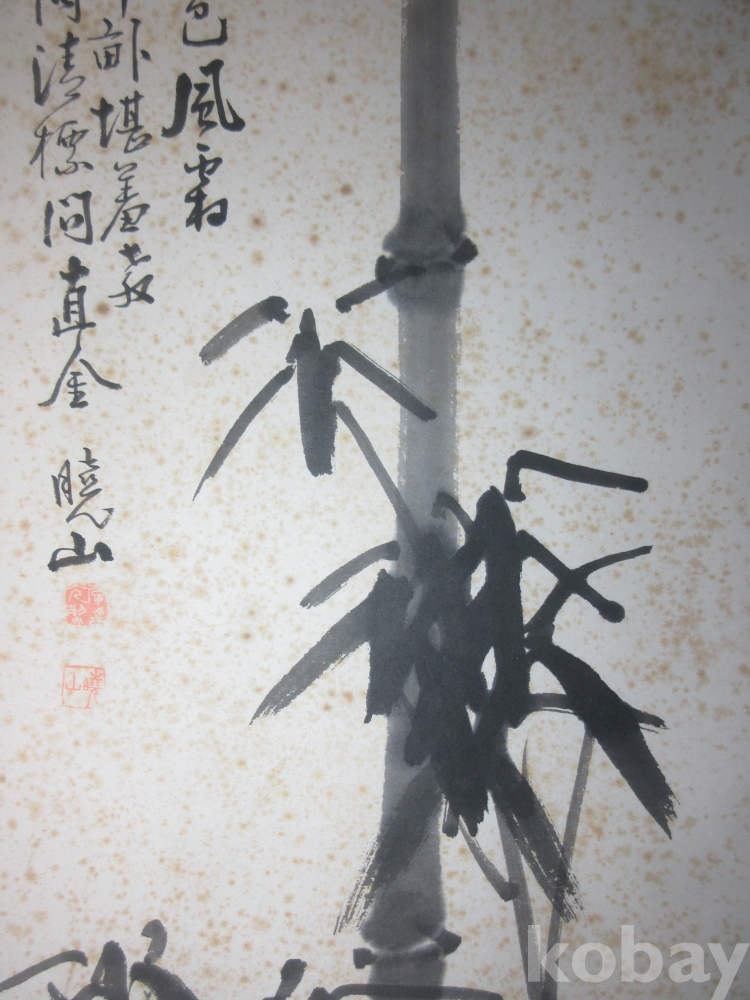 色風霜
畝堪羞
清標問直金
曉山
曉山
kobay